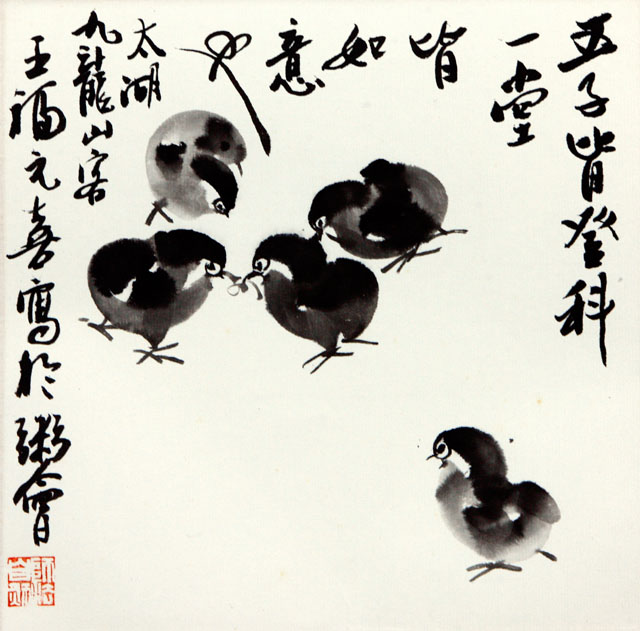 五子皆登科
一堂
皆如意也
太湖
九龍山客
王福元喜寫於粥會